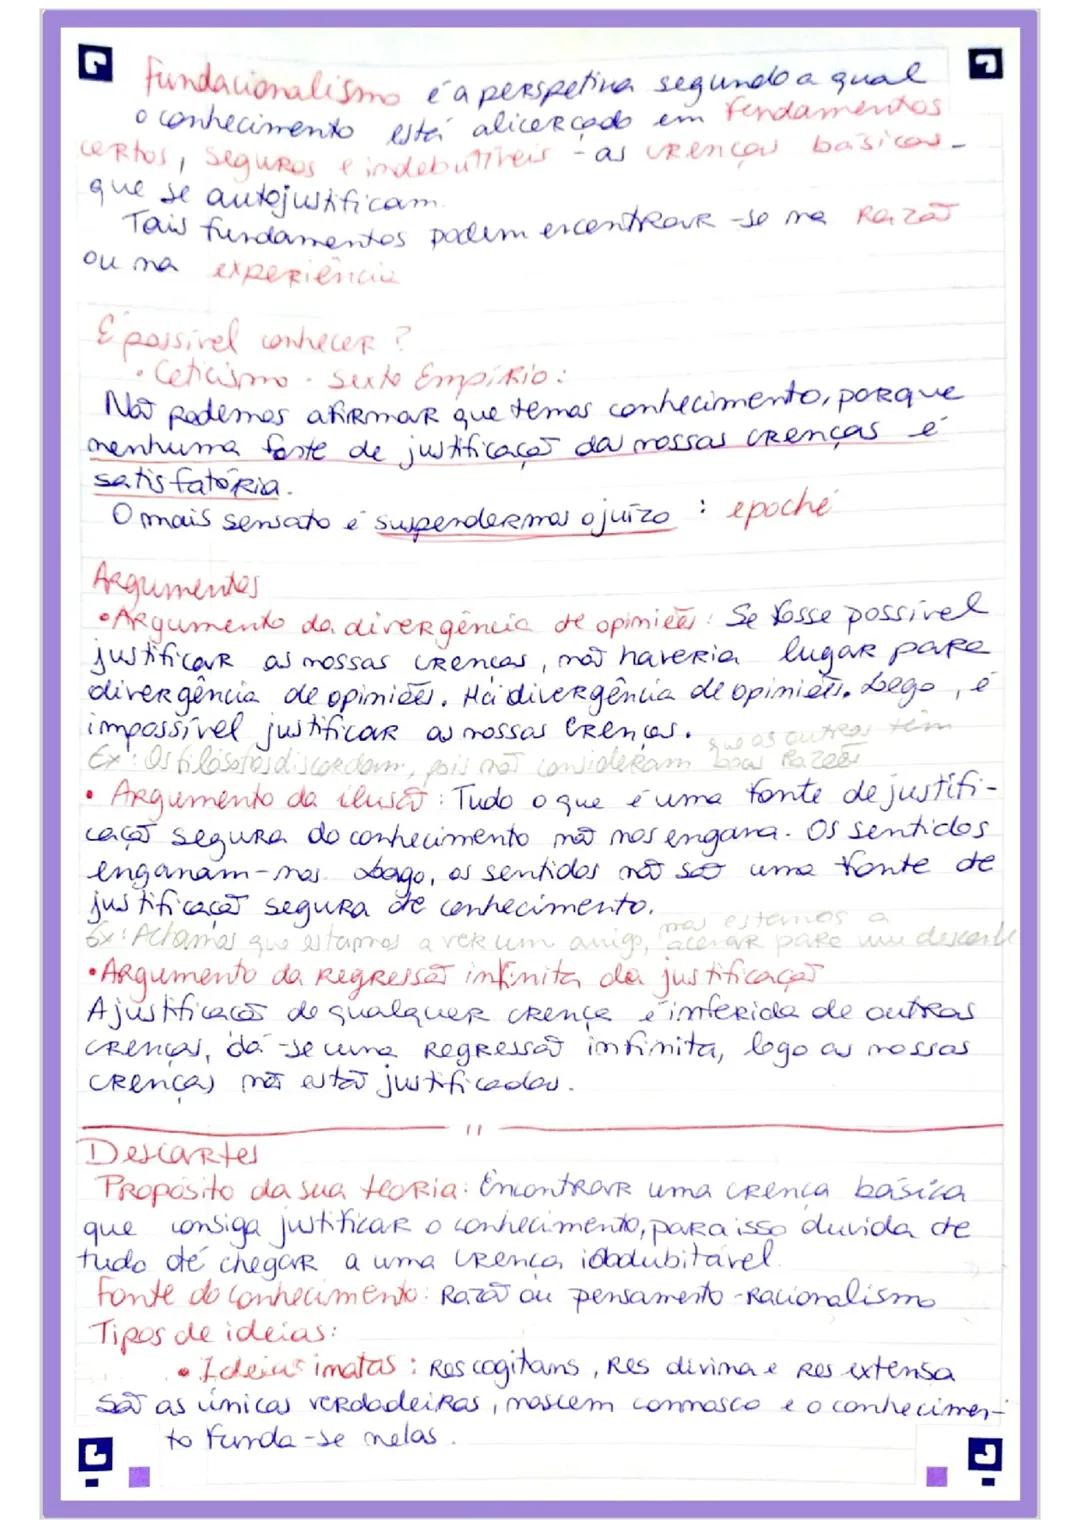 Fundacionalismo é a perspetiva segundo a qual
o conhecimento está alicerçado em fundamentos
certos, seguros e indebutíveis - as crenças básicas -
que se autojustificam.
Tais fundamentos podem encontrar-se na Razão
ou na experiência
É possível conhecer?
• Ceticismo - Sexto Empírio:
Não podemos afirmar que temos conhecimento, porque
nenhuma fonte de justificação das nossas crenças é
satisfatória.
O mais sensato é suspendermos o juízo : epoché
Argumentos
• Argumento da divergência de opiniões: Se fosse possível
justificar as nossas crenças, não haveria lugar para
divergência de opiniões. Há divergência de opiniões. Logo, é
impossível justificar as nossas crenças.
Ex: Os filósofos discordam, pois não consideram que os outros têm boas razões
• Argumento da ilusão: Tudo o que é uma fonte de justifi-
cação segura do conhecimento não nos engana. Os sentidos
enganam-nos. Logo, os sentidos não são uma fonte de
justificação segura de conhecimento.
Ex: Achamos que estamos a ver um amigo, mas estamos a acenar para um desconh
• Argumento da regressão infinita da justificação
A justificação de qualquer crença é inferida de outras
crenças, dá-se uma regressão infinita, logo as nossas
crenças não estão justificadas.
Descartes
Propósito da sua teoria: Encontrar uma crença básica
que consiga justificar o conhecimento, para isso duvida de
tudo até chegar a uma crença indubitável.
Fonte do conhecimento: Razão ou pensamento - Racionalismo
Tipos de ideias:
• Ideias inatas: Res cogitans, Res divina e Res extensa
São as únicas verdadeiras, nascem connosco e o conhecimen-
to funda-se nelas.